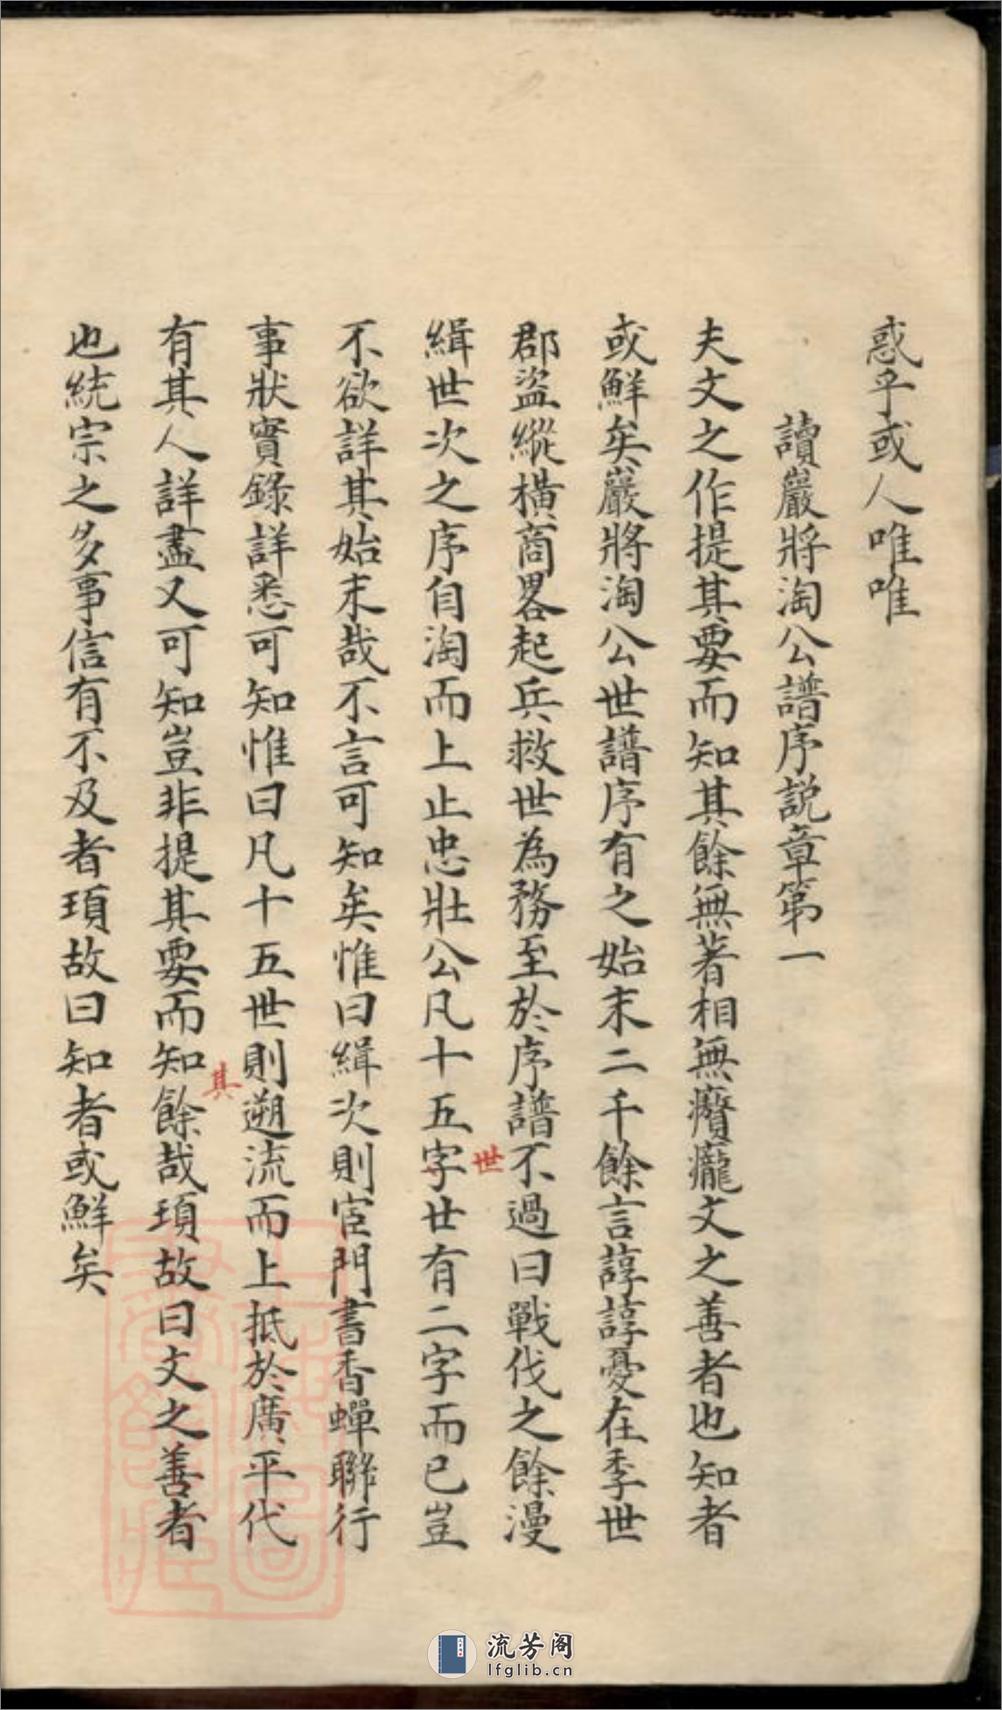 惑乎或人唯唯
讀嚴將淘公譜序説章第一
夫文之作提其要而知其餘無著相無癈㿈文之善者也知者
或鮮矣嚴將淘公世譜序有之始末二千餘言諄諄憂在季世
郡盜縱橫商畧起兵救世為務至於序譜不過曰戰伐之餘漫
緝世次之序自淘而上止忠壯公凡十五字廿有二字而已豈
世
不欲詳其始末哉不言可知矣惟曰緝次則宦門書香蟬聯行
事狀實錄詳悉可知惟曰凡十五世則遡流而上抵於廣平代
有其人詳盡又可知豈非提其要而知餘哉頊故曰文之善者
其
也統宗之多事信有不及者頊故曰知者或鮮矣
流芳阁
lfglib.cn